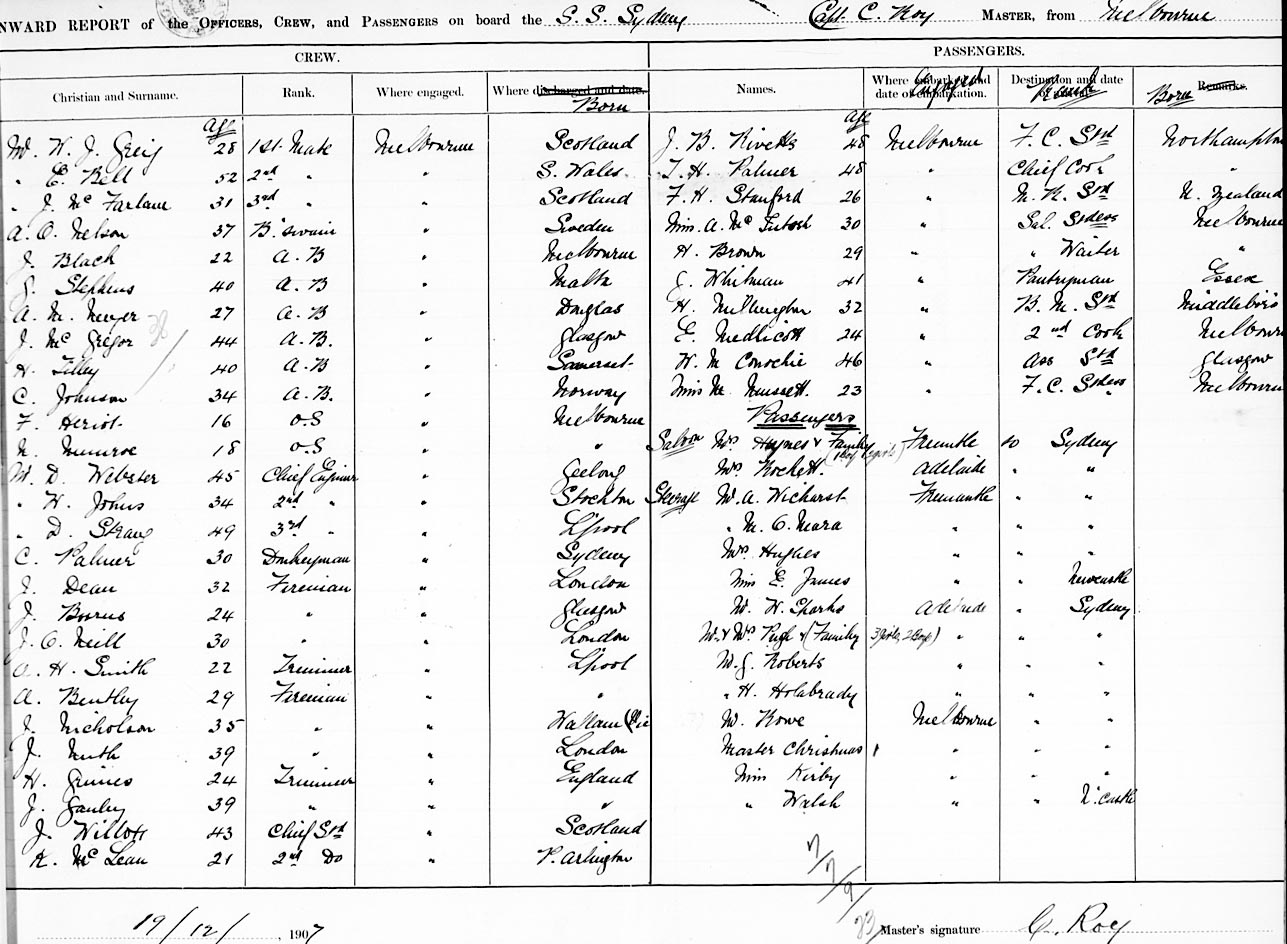 NWARD REPORT of the OFFICERS, CREW, and PASSENGERS on board the S. S. Sydney Capt. C. Roy MASTER, from Melbourne
CREW. PASSENGERS.
Christian and Surname. Rank. Where engaged. Where discharged and date. Born Names. Where embarked and date of embarkation. Engaged Destination and date Rank Born Remarks.
Age Age
Mr. W. J. Greig 28 1st Mate Melbourne Scotland J. B. Rivetts 48 Melbourne F. C. Std Northampton
" E. Bell 52 2nd " " S. Wales. T. H. Palmer 48 " Chief Cook "
" J. Mc Farlane 31 3rd " " Scotland F. H. Stanford 26 " M. R. Std N. Zealand
A. O. Nelson 37 B. swain " Sweden Miss A. Mc Intosh 30 " Sal. Stdess Melbourne
J. Black 22 A. B " Melbourne H. Brown 29 " " Waiter "
J. Stephens 40 A. B " Malta J. Whitman 41 " Pantryman Essex
A. M. Meyer 27 A. B " Douglas H. Millington 32 " B. M. Std Middleboro
J. Mc Gregor 44 A. B. " Glasgow E. Medlicott 24 " 2nd Cook Melbourn
H. Tilley 40 A. B " Somerset W. M Conochie 46 " Ass Std Glasgow
C. Johnson 34 A. B. " Norway Miss M. Mussett. 23 " F. C. Stdess Melbourn
F. Heriot. 16 O.S " Melbourne Passengers
N. Munroe 18 O.S " " Saloon Mrs Haynes & Family (1 boy 2 girls) Fremtle to Sydney
Mr. D. Webster 45 Chief Engineer " Geelong Mrs Rockett. Adelaide " "
" W. Johns 34 2nd " " Stockton Steerage Mr A. Wichurst Fremantle " "
" D. Strang 49 3rd " " L'pool " M. O. Mara " " "
C. Palmer 30 Donkeyman " Sydney Mrs Hughes " " "
J. Dean 32 Fireman " London Miss E. James " " Newcastle
J. Bowus 24 " " Glasgow Mr. W. Sparks Adelaide " Sydney
J. O. Neill 30 " " London Mr. & Mrs Pugh & (Family 3 girls, 2 Boys) " " "
A. H. Smith 22 Trimmer " L'pool Mr. J. Roberts " " "
A. Bentley 29 Fireman " " " H. Holabrady " " "
J. Nicholson 35 " " Hallam (Vic Mr. Rowe Melbourne " "
J. Muth 39 " " London Master Christmas " " "
H. Grimes 24 Trimmer " England Miss Kirby " " "
J. Ganley 39 " " " " Walsh " " N'castle
J. Willott 43 Chief Std " Scotland
K. Mc Lean 21 2nd Do " P. Arlington
19/12/, 1907 Master's signature C. Roy